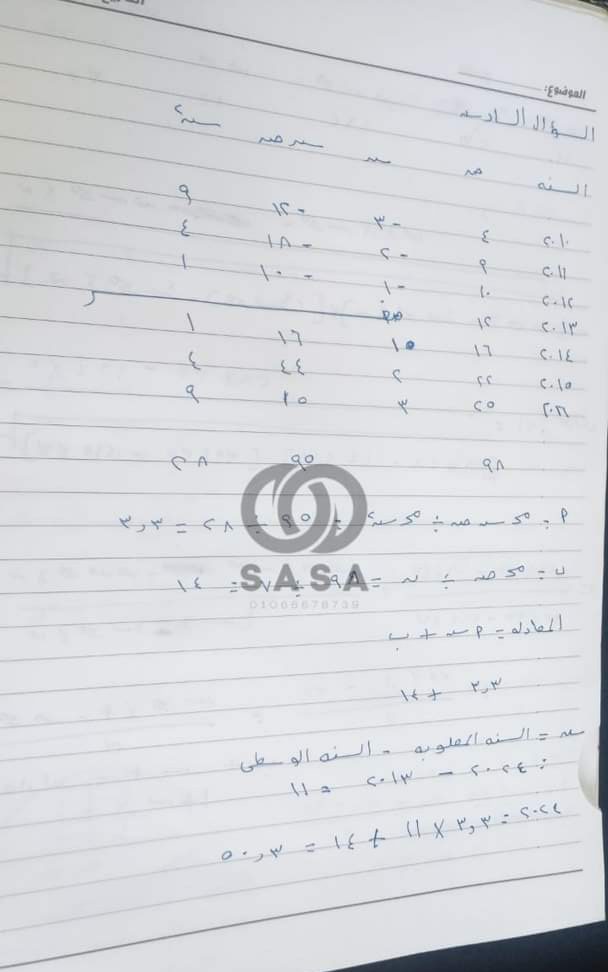 الموضوع:
السؤال السادس
السنه ص س س ص س٢
٢٠١٠ ٤ -٣ -١٢ ٩
٢٠١١ ٩ -٢ -١٨ ٤
٢٠١٢ ١٠ -١ -١٠ ١
٢٠١٣ ١٢ صفر
٢٠١٤ ١٦ ١ ١٦ ١
٢٠١٥ ٢٢ ٢ ٤٤ ٤
٢٠١٦ ٢٥ ٣ ٧٥ ٩
٩٨ ٩٥ ٢٨
م = مج س ص ÷ مج س٢ = ٩٥ ÷ ٢٨ = ٣,٣
ب = مج ص ÷ ن = ٩٨ ÷ ٧ = ١٤
المعادله = م س + ب
٣,٣ + ١٤
س = السنه المطلوبه - السنه الوسطى
= ٢٠٢٤ - ٢٠١٣ = ١١
٢٠٢٤ = ٣,٣ × ١١ + ١٤ = ٥٠,٣
SASA
01066678739